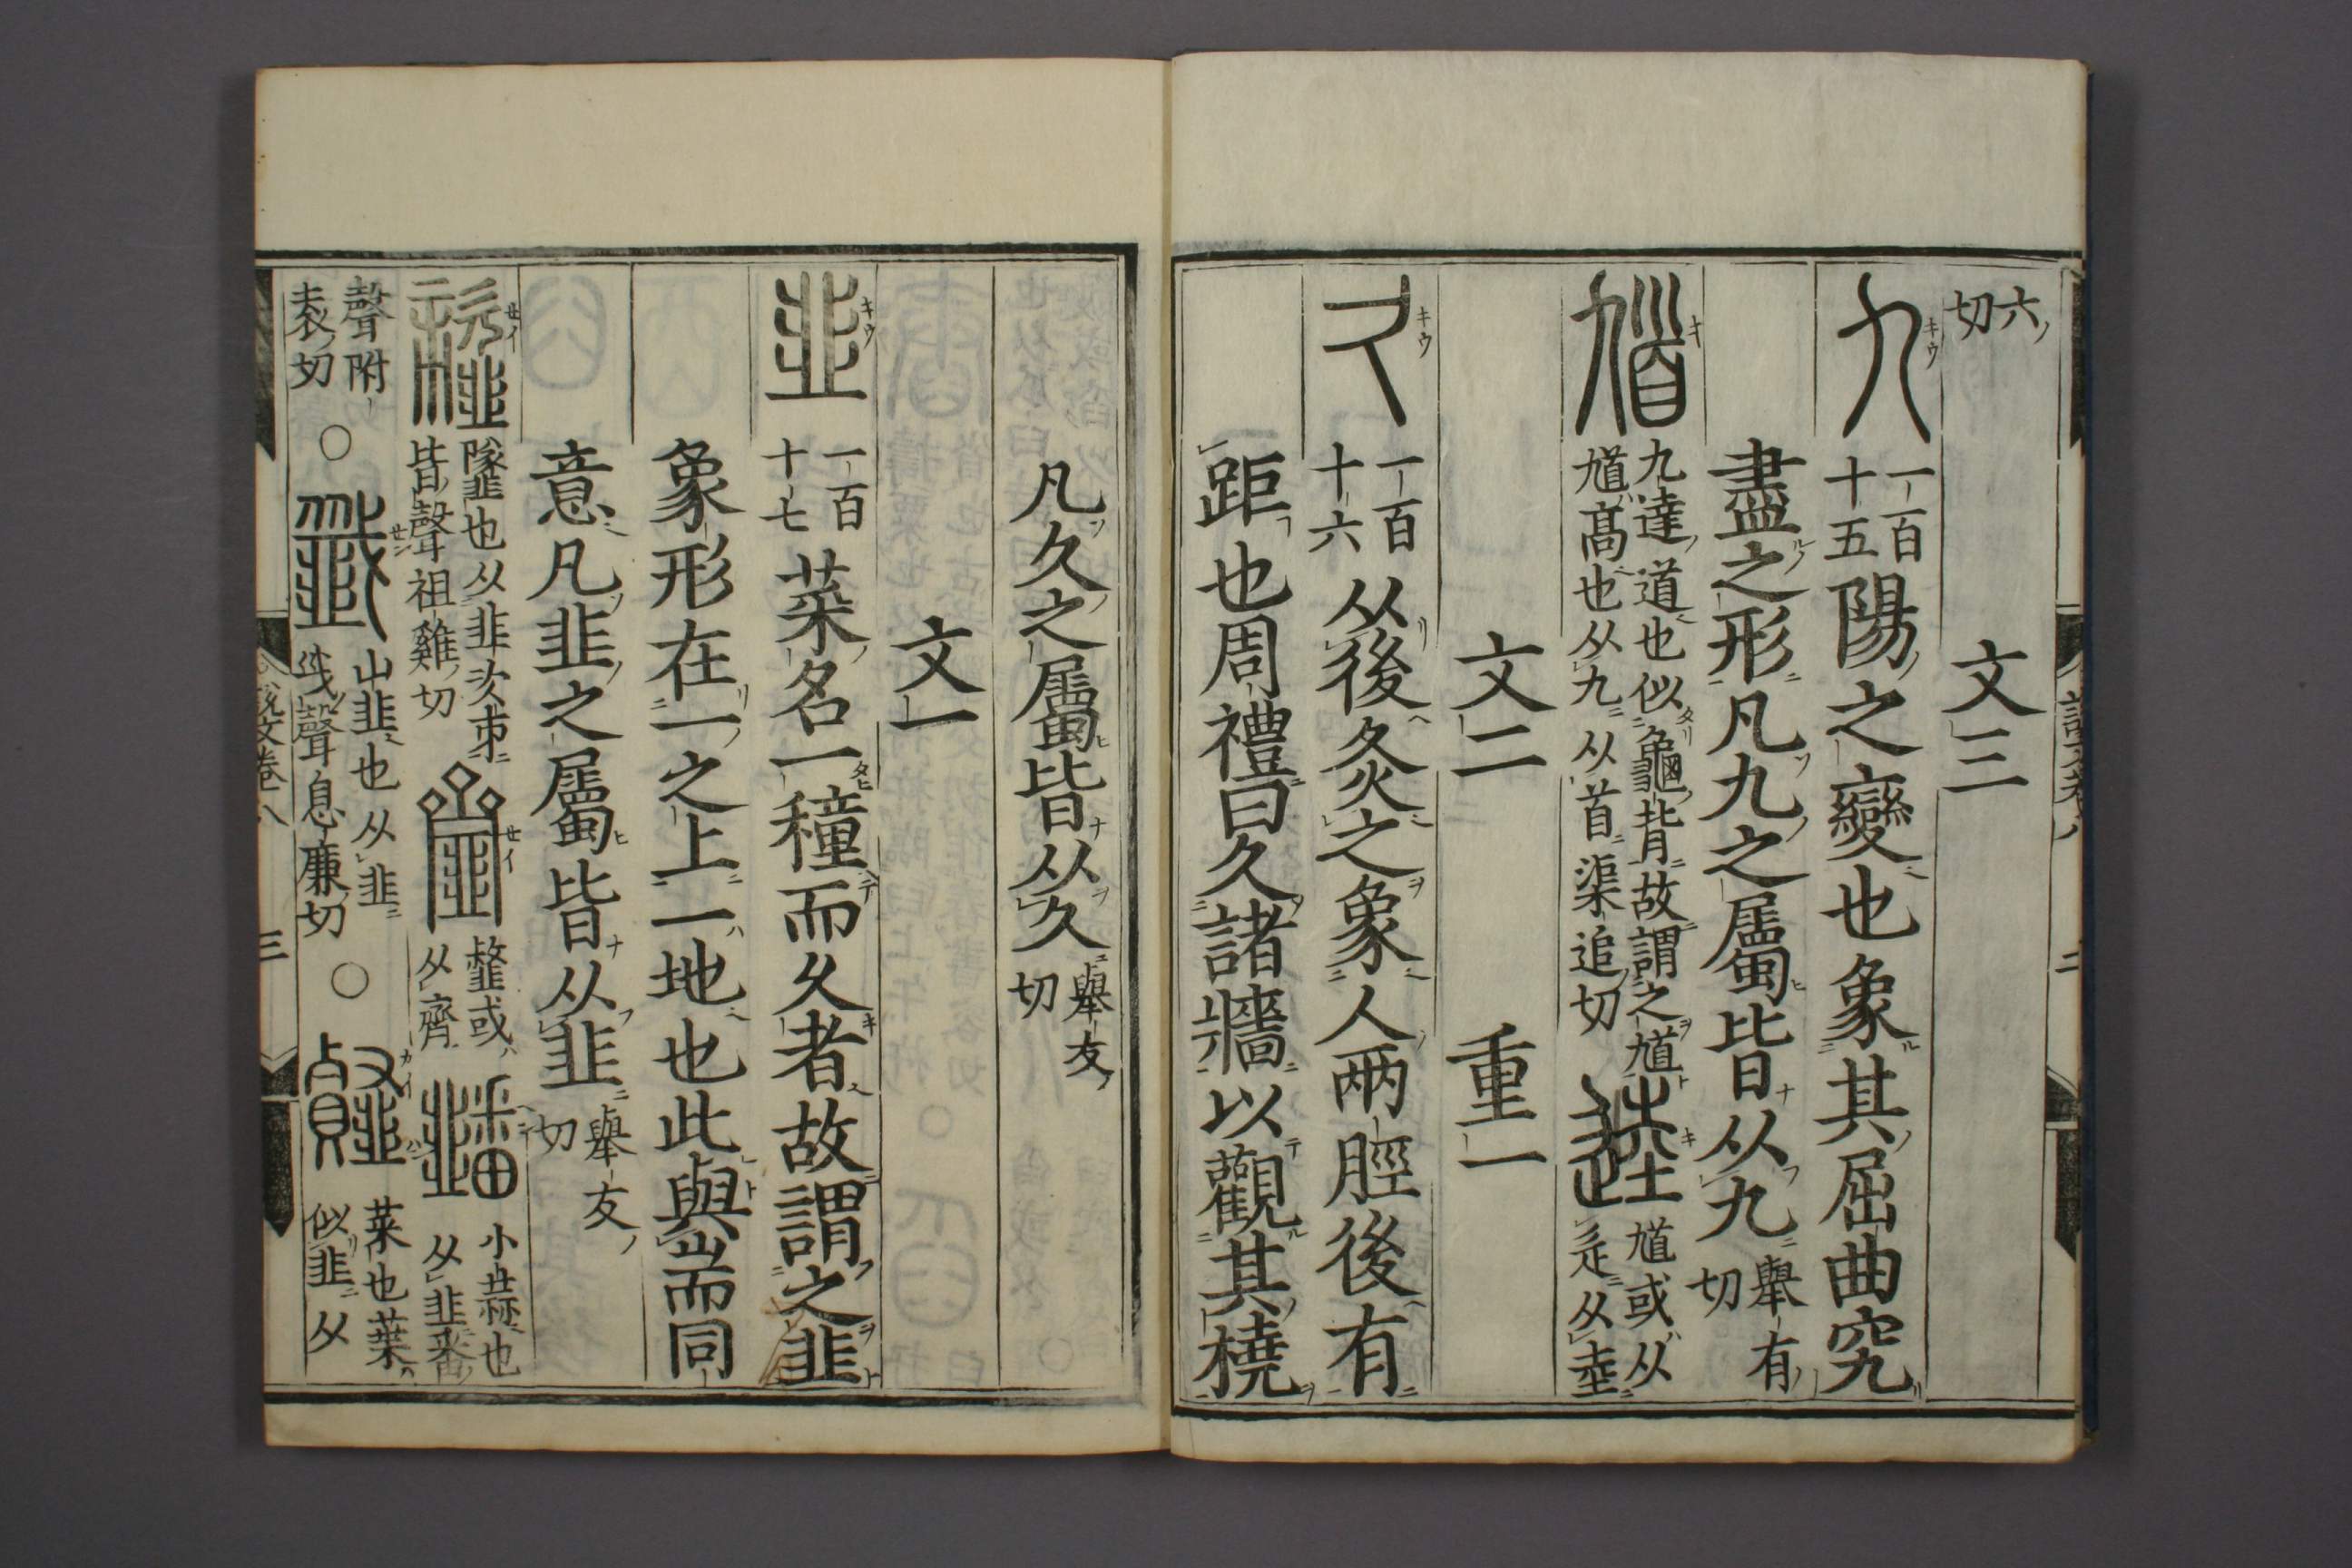 六切
文三
九 一百十五 陽之變也象其屈曲究
盡之形凡九之屬皆从九 舉有切
馗 九達道也似龜背故謂之馗馗高也从九从首渠追切 逵 馗或从辵从坴
文二 重一
久 一百十六 从後灸之象人兩脛後有
距也周禮曰久諸牆以觀其橈
凡久之屬皆从久 舉友切
文一
韭 一百十七 菜名一種而久者故謂之韭
象形在一之上一地也此與耑同
意凡韭之屬皆从韭 舉友切
䪢 墜也从韭次𠂔皆聲祖雞切 齏 䪢或从齊 䪤 小蒜也从韭番
聲附袁切 〇 韱 山韭也从韭𢦟聲息廉切 〇 䪥 菜也葉似韭从
說文卷八 二
說文卷八 三